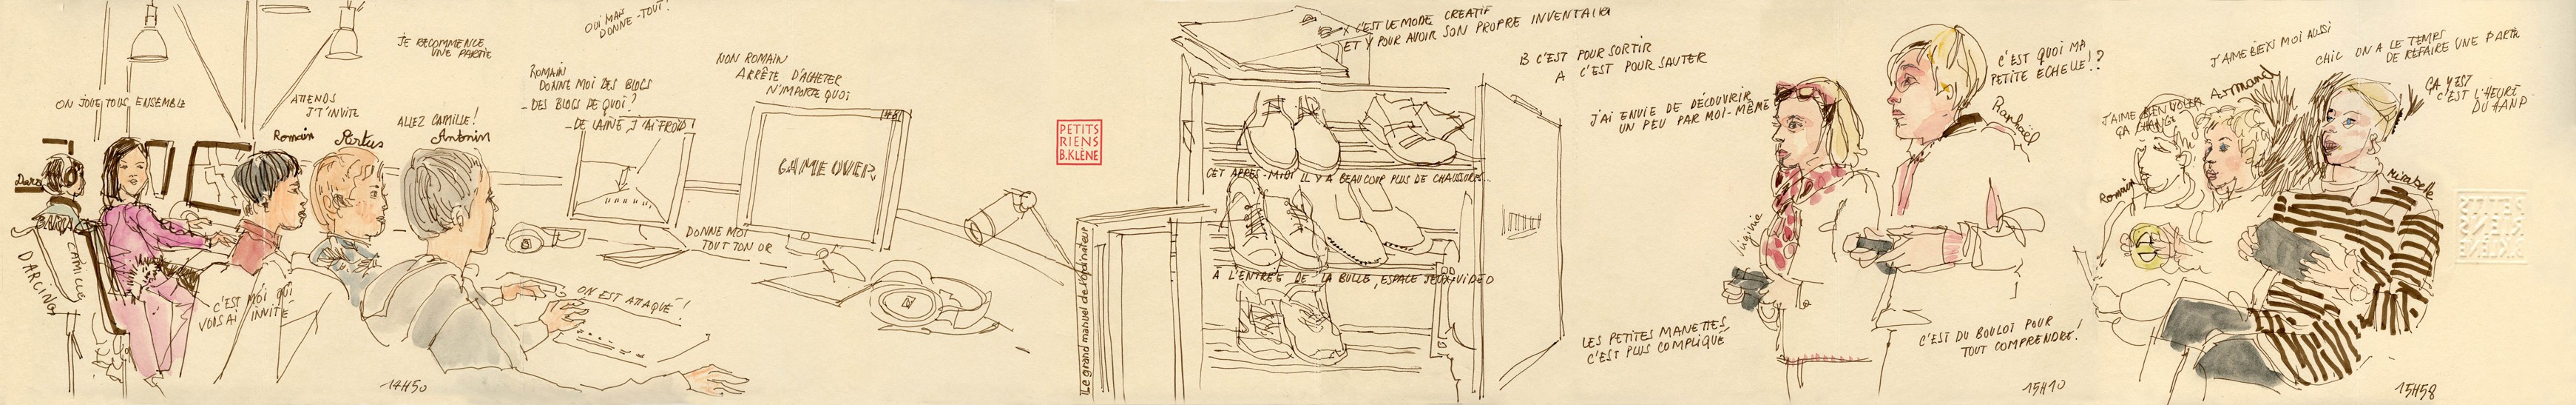 ON JOUE TOUS ENSEMBLE
ATTENDS
J'T'INVITE
JE RECOMMENCE
UNE PARTIE
OUI MAIS
DONNE-TOUT!
ALLEZ CAMILLE!
Romain
Antonin
DARCING
CAMILLE
C'EST MOI QUI
VOUS AI INVITÉ
14H50
ROMAIN
DONNE MOI DES BLOCS
-DES BLOCS DE QUOI?
-DE LAINE, J'AI FROID!
NON ROMAIN
ARRÊTE D'ACHETER
N'IMPORTE QUOI
GAME OVER
DONNE MOI
TOUT TON OR
ON EST ATTAQUÉ!
PETITS
RIENS
B.KLÈNE
Le grand manuel de l'ordinateur
X C'EST LE MODE CREATIF
ET Y POUR AVOIR SON PROPRE INVENTAIRE
B C'EST POUR SORTIR
A C'EST POUR SAUTER
CET APRES-MIDI IL Y A BEAUCOUP PLUS DE CHAUSSURES
À L'ENTRÉE DE LA BULLE, ESPACE JEUX-VIDÉO
J'AI ENVIE DE DÉCOUVRIR
UN PEU PAR MOI-MÊME
Virginie
LES PETITES MANETTES
C'EST PLUS COMPLIQUÉ
C'EST QUOI MA
PETITE ECHELLE!?
Raphaël
C'EST DU BOULOT POUR
TOUT COMPRENDRE!
15H10
J'AIME BIEN MOI AUSSI
CHIC ON A LE TEMPS
DE REFAIRE UNE PARTIE
ÇA Y EST
C'EST L'HEURE
J'AIME BIEN VOLER
ÇA CHANGE
Armand
Romain
Mirabelle
15H58
PETITS
RIENS
B.KLÈNE